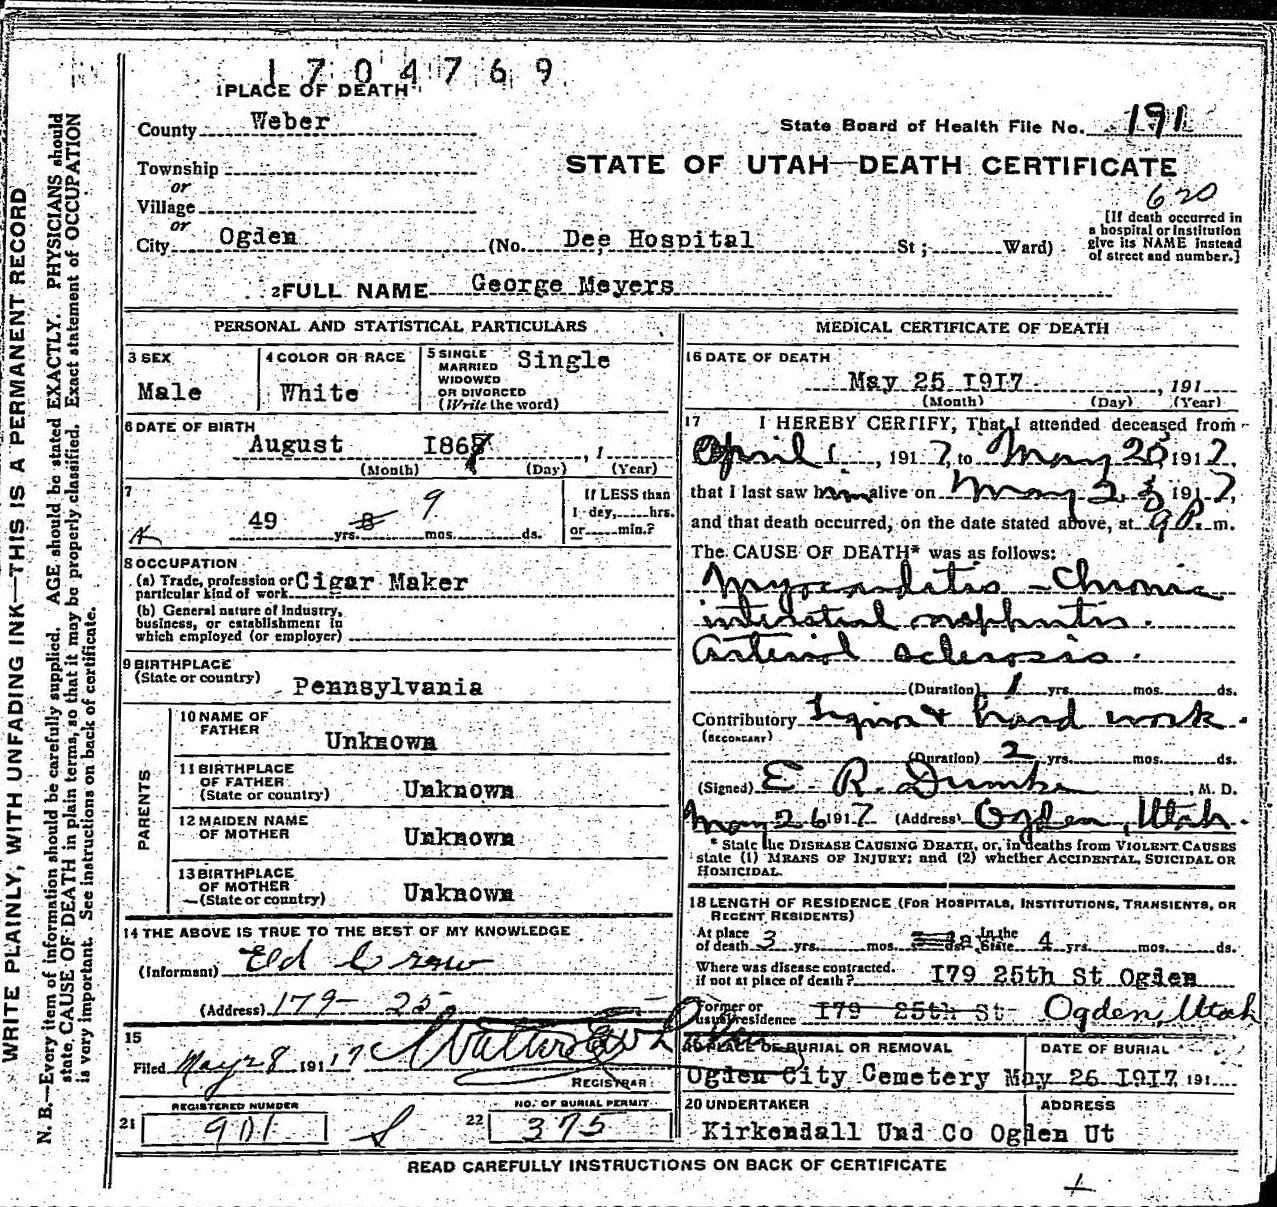 1704769
1 PLACE OF DEATH
County Weber
State Board of Health File No. 191
Township
or
Village
or
STATE OF UTAH—DEATH CERTIFICATE
620
City Ogden (No. Dee Hospital St ; Ward)
[If death occurred in
a hospital or institution
give its NAME instead
of street and number.]
2 FULL NAME George Meyers
PERSONAL AND STATISTICAL PARTICULARS
3 SEX
Male
4 COLOR OR RACE
White
5 SINGLE
MARRIED
WIDOWED
OR DIVORCED
(Write the word)
Single
6 DATE OF BIRTH
August 186 , 1
(Month) (Day) (Year)
7
49 yrs. 8 9 mos. ds.
If LESS than
1 day, hrs.
or min.?
8 OCCUPATION
(a) Trade, profession or
particular kind of work Cigar Maker
(b) General nature of industry,
business, or establishment in
which employed (or employer)
9 BIRTHPLACE
(State or country)
Pennsylvania
PARENTS
10 NAME OF
FATHER
Unknown
11 BIRTHPLACE
OF FATHER
(State or country)
Unknown
12 MAIDEN NAME
OF MOTHER
Unknown
13 BIRTHPLACE
OF MOTHER
(State or country)
Unknown
14 THE ABOVE IS TRUE TO THE BEST OF MY KNOWLEDGE
(Informant) Ed Crow
(Address) 179- 25-
15
Filed May 28 1917 Walter
REGISTRAR
21 REGISTERED NUMBER
901
22 NO. OF BURIAL PERMIT
375
MEDICAL CERTIFICATE OF DEATH
16 DATE OF DEATH
May 25 1917 , 191
(Month) (Day) (Year)
17 I HEREBY CERTIFY, That I attended deceased from
April 1 , 1917, to May 25 1917,
that I last saw him alive on May 23 1917,
and that death occurred, on the date stated above, at 9 P. m.
The CAUSE OF DEATH* was as follows:
Myocarditis - Chronic
interstitial nephritis.
Arterial sclerosis.
(Duration) 1 yrs. mos. ds.
Contributory Liquor & hard work.
(SECONDARY)
(Duration) 2 yrs. mos. ds.
(Signed) E. R. Dumke, M. D.
May 26 1917 (Address) Ogden, Utah.
* State the DISEASE CAUSING DEATH, or, in deaths from VIOLENT CAUSES
state (1) MEANS OF INJURY; and (2) whether ACCIDENTAL, SUICIDAL OR
HOMICIDAL.
18 LENGTH OF RESIDENCE (FOR HOSPITALS, INSTITUTIONS, TRANSIENTS, OR
RECENT RESIDENTS)
At place
of death 3 yrs. mos. ds. In the
State 4 yrs. mos. ds.
Where was disease contracted,
if not at place of death? 179 25th St Ogden
Former or
usual residence 179 25th St Ogden, Utah
19 PLACE OF BURIAL OR REMOVAL
Ogden City Cemetery
DATE OF BURIAL
May 26 1917 191
20 UNDERTAKER
Kirkendall Und Co Ogden Ut
ADDRESS
READ CAREFULLY INSTRUCTIONS ON BACK OF CERTIFICATE
WRITE PLAINLY, WITH UNFADING INK—THIS IS A PERMANENT RECORD
N. B.—Every item of information should be carefully supplied. AGE should be stated EXACTLY. PHYSICIANS should
state CAUSE OF DEATH in plain terms, so that it may be properly classified. Exact statement of OCCUPATION
is very important. See instructions on back of certificate.